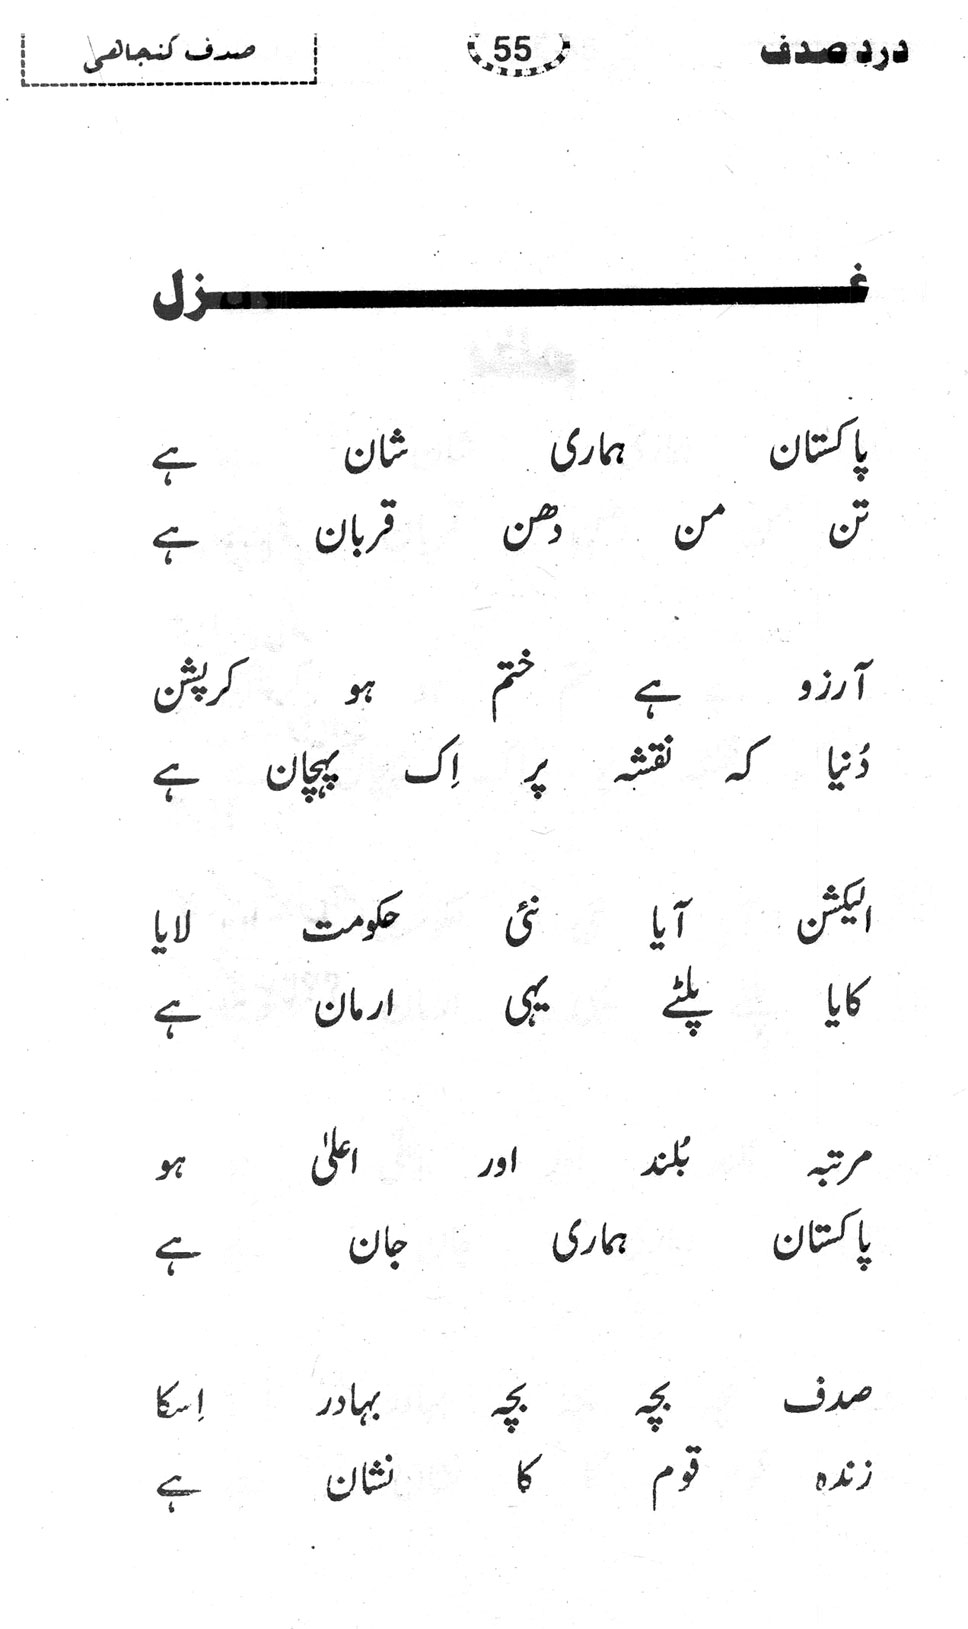 درد صدف 55 صدف کنجاھی
غزل
پاکستان ہماری شان ہے
تن من دھن قربان ہے
آرزو ہے ختم ہو کرپشن
دُنیا کہ نقشہ پر اِک پہچان ہے
الیکشن آیا نئی حکومت لایا
کایا پلٹے یہی ارمان ہے
مرتبہ بُلند اور اعلیٰ ہو
پاکستان ہماری جان ہے
صدف بچہ بچہ بہادر اِسکا
زندہ قوم کا نشان ہے